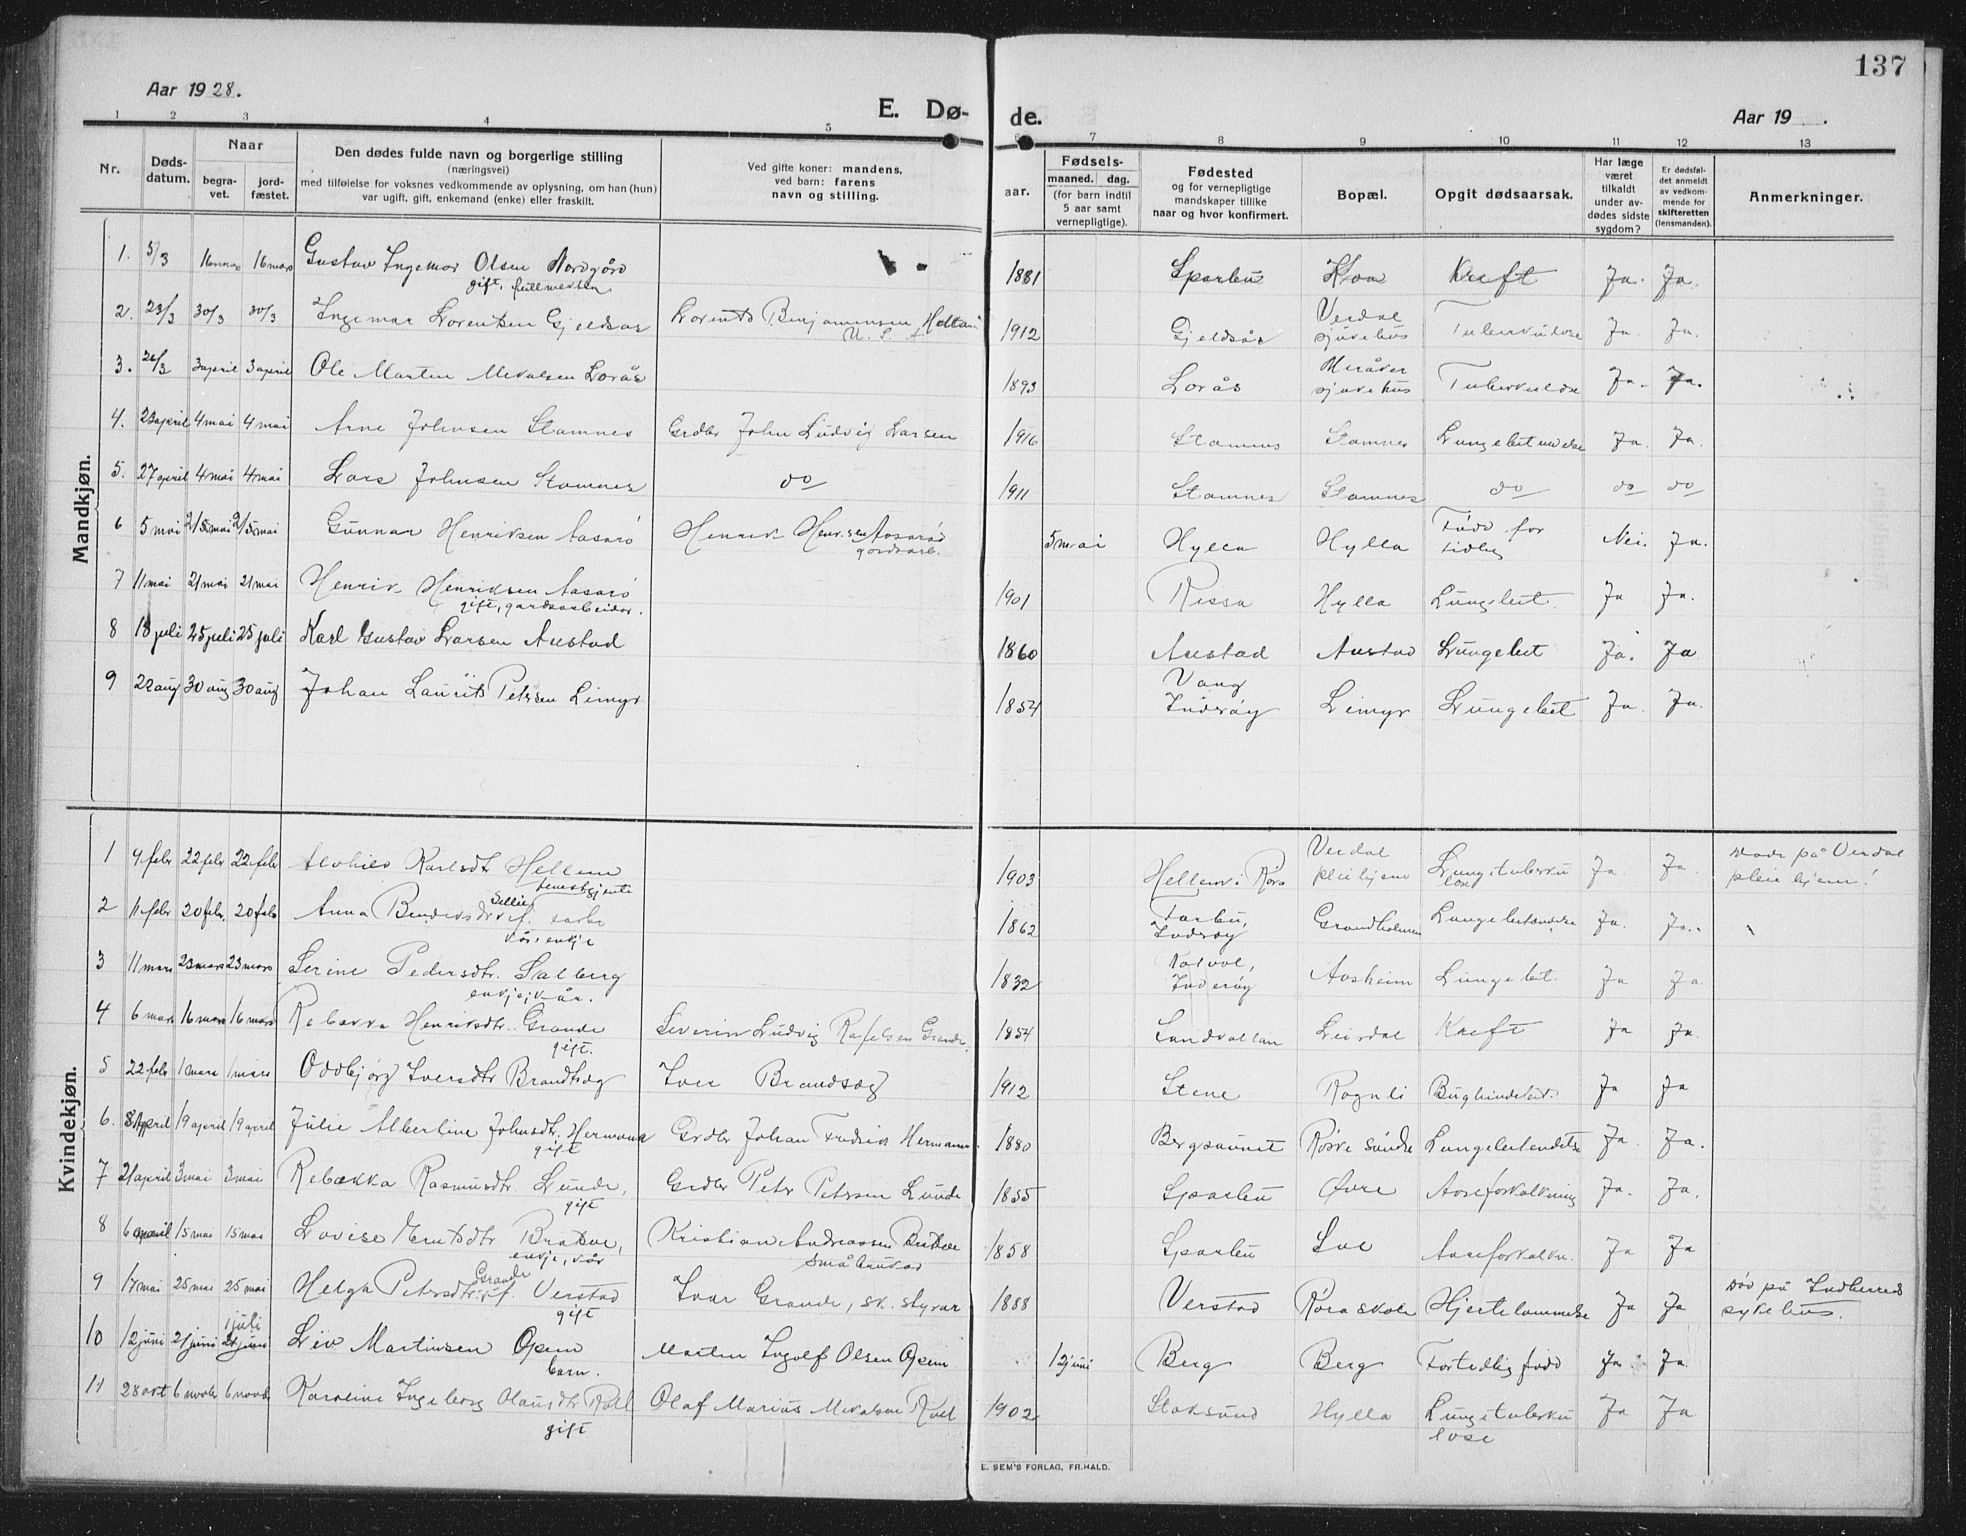 137
Aar 1928.
E. Dø-
de.
Aar 19 .
1 2 3 4 5 6 7 8 9 10 11 12 13
Nr.
Døds-
datum.
Naar
begra-
vet.
jord-
fæstet.
Den dødes fulde navn og borgerlige stilling
(næringsvei)
med tilføielse for voksnes vedkommende av oplysning, om han (hun)
var ugift, gift, enkemand (enke) eller fraskilt.
Ved gifte koner: mandens,
ved barn: farens
navn og stilling.
aar.
Fødsels-
maaned. dag.
(for barn indtil
5 aar samt
vernepligtige).
Fødested
og for vernepligtige
mandskaper tillike
naar og hvor konfirmert.
Bopæl.
Opgit dødsaarsak.
Har læge
været
tilkaldt
under av-
dødes sidste
sygdom?
Er dødsfal-
det anmeldt
av vedkom-
mende for
skifteretten
(lensmanden).
Anmerkninger.
Mandkjøn.
1. 5/3 16 mars 16 mars Gustav Ingemar Olsen Nordgård 1881 Sparbu Kreft Ja. Ja.
gift,
2. 23/3 30/3 30/3 Ingemar Lorentsen Gjeldsås Lorents Benjaminsen 1912 Gjeldsås Verdal
sjukehus Tuberkulose Ja Ja.
3. 3 april 3 april Ole Martin Mikalsen Lorås 1893 Lorås Meråker
sjukehus Tuberkulose Ja. Ja.
4. 23 april 4 mai 4 mai Arne Johnsen Stamnes Grdbr John Ludvig Larsen 1916 Stamnes Stamnes Lungebetendelse Ja. Ja.
5. 27 april 4 mai 4 mai Lars Johnsen Stamnes do 1911 Stamnes Stamnes do do do
6 5 mai 2/5 mai 2/5 mai Gunnar Henriksen Aasarø Henrik Henr.sen Aasarø
gårdsarb. 5 mai Hylla Hylla Född for
tidlig Nei. Ja.
7 11 mai 21 mai 21 mai Henrik Henriksen Aasarø 1901 Rissa Hylla Lungebet. Ja Ja.
gift, gardsarbeidar.
8 18 juli 25 juli 25 juli Karl Gustav Larsen Austad 1860 Austad Austad Lungebet Ja. Ja
9 22 aug 30 aug 30 aug Johan Laurits Petersen Limyr 1854 Vang
Inderøy Limyr Lungebet Ja. Ja.
Kvindekjøn.
1 9 febr 22 febr 22 febr Karlsdtr Hellem 1903 Hellem i Røra Verdal
pleiehjem Lungetuberku
lose Ja Ja Døde på Verdal
pleiehjem!
2 11 febr 20 febr. 20 febr Anna 1862
Inderøy Grandholmen Lungebetendelse Ja. Ja.
3 11 mars 23 mars 23 mars Serine Pedersdtr. Salberg 1832
Inderøy Aasheim Lungebet. Ja Ja.
enkje, kår.
4 6 mars 16 mars 16 mars Rebekka Henriksdtr. Grande Severin Ludvig Rafelsen Grande. 1854 Sandvollan Leirdal Kreft Ja Ja.
gift.
5 22 febr 1 mars 1 mars Oddbjørg Iversdtr Brandtsæg Iver Brandsæg 1912 Stene Rognli Bughindebet. Ja Ja
6. 8 April 19 april 19 april Julie Albertine Johnsdtr. Hermann Grdbr Johan Fredrik Hermann. 1880 Bergsaunet Røsve søndre Lungebetendelse Ja. Ja.
gift
7 21 april 3 mai 3 mai Rebekka Rasmusdtr Lunde, Grdbr Peter Petersen Lunde 1855 Sparbu Øvre Aareforkalkning Ja. Ja.
gift
8 6 april 15 mai 15 mai Lovise Bratvoe, Kristian Andreassen
småbrukar 1858 Sparbu Aareforkalkn. Ja Ja
enkje, kår
9 17 mai 25 mai 25 mai Helga Petersdtr. f. Verstad Ivar Grande, sk. styrar 1888 Verstad Røra skole Hjertelammelse Ja Ja Død på Indherred
sykehus.
Grande
gift
10 12 juni 21 juni 1 juli
21 juni Liv Martinsen Opem Marten Ingolf Olsen Opem 12 juni Berg Berg Fortidlig född Ja. Ja.
barn.
11 28 okt 6 novbr 6 novbr Karoline Ingeborg Olausdtr Roel Olaf Marius Mikalsen Roel 1902 Stoksund Hylla Lungetuberku
lose Ja Ja
gift
E. SEM'S FORLAG, FR.HALD.